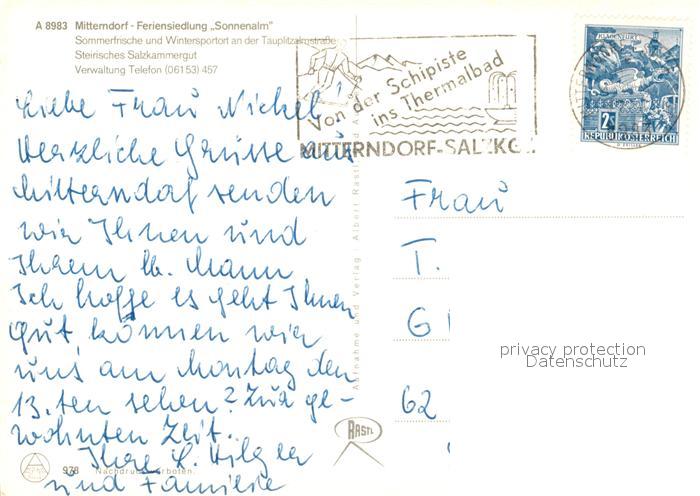 A 8983 Mitterndorf - Feriensiedlung „Sonnenalm”
Sommerfrische und Wintersportort an der Tauplitzalmstraße
Steirisches Salzkammergut
Verwaltung Telefon (06153) 457
Liebe Frau Nickel!
Herzliche Grüsse aus
Mitterndorf senden
wir Ihnen und
Ihrem lb. Mann
Ich hoffe es geht Ihnen
gut, können wir
uns am Montag den
13.ten sehen? Zur ge-
wohnten Zeit.
Ihre L. Hilger
und Familie
978 Nachdruck verboten.
Aufnahme und Verlag: Albert Rastl, Bad
RASTL
Von der Schipiste
ins Thermalbad
MITTERNDORF-SALZKG.
KLAGENFURT
2S
REPUBLIK ÖSTERREICH
Frau
T.
G
62
privacy protection
Datenschutz